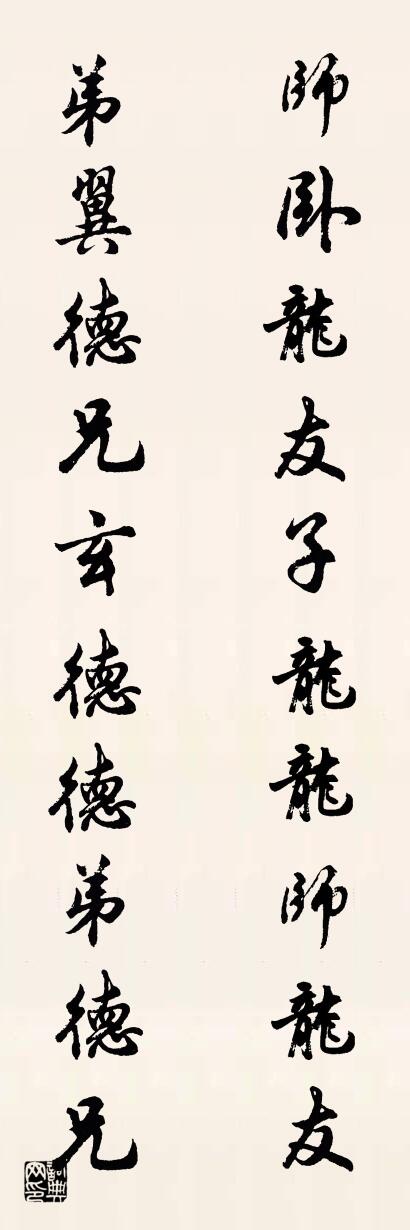 師卧龍友子龍龍師龍友
弟翼德兄玄德德弟德兄